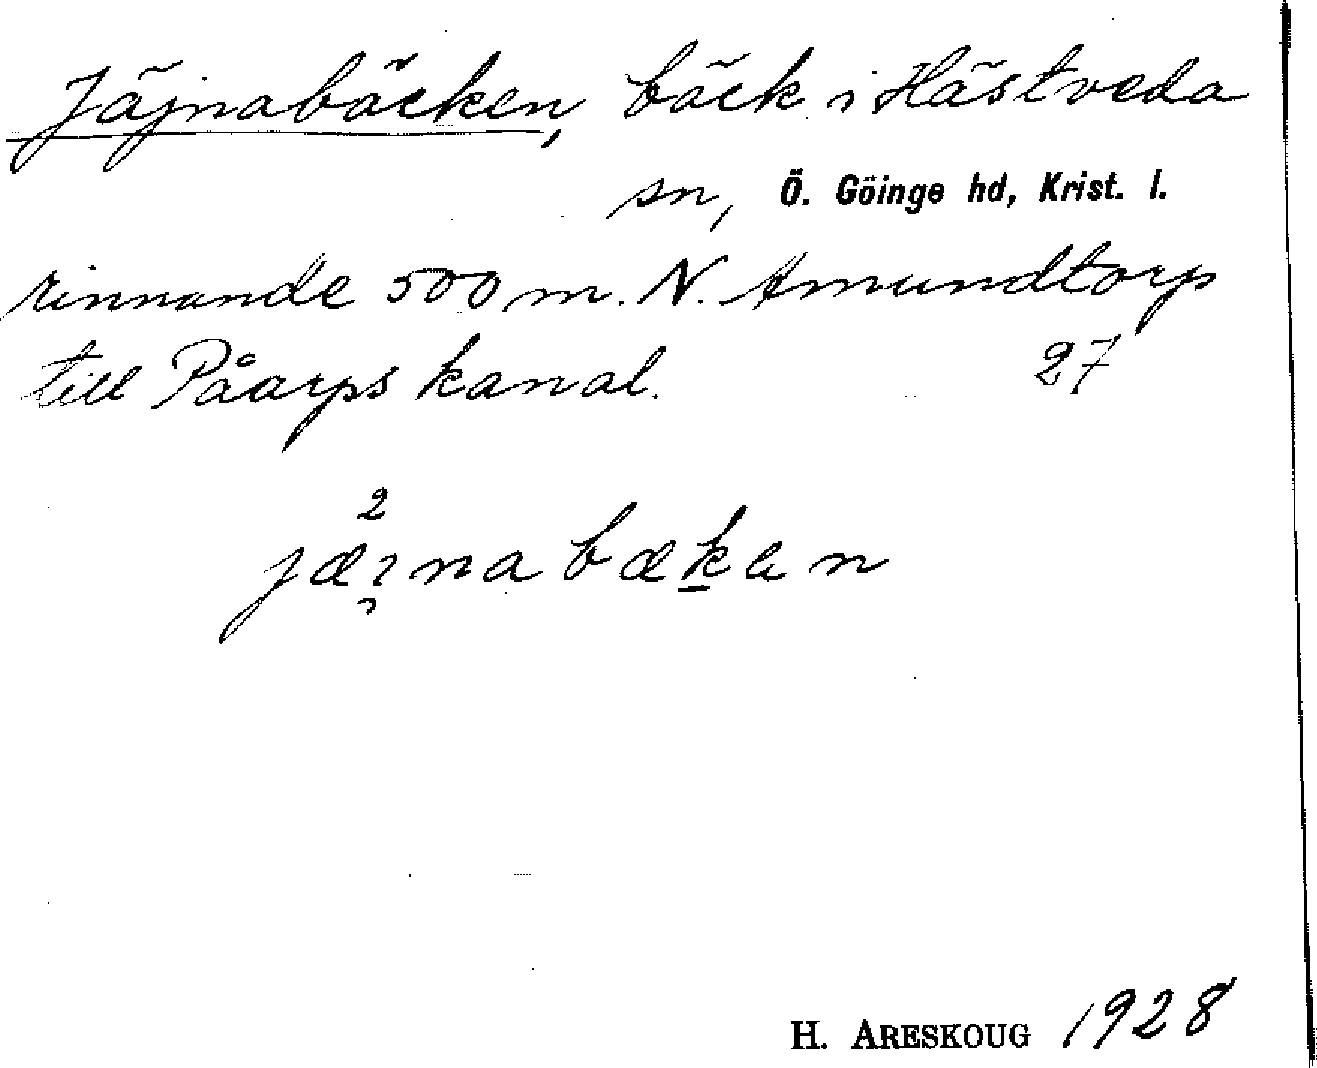 Jäjnabäcken, bäck i Hästveda
sn, Ö. Göinge hd, Krist. l.
rinnande 500 m. N. Amundtorp
till Påarps kanal. 27
2
jæi̯nabæḵen
H. ARESKOUG 1928